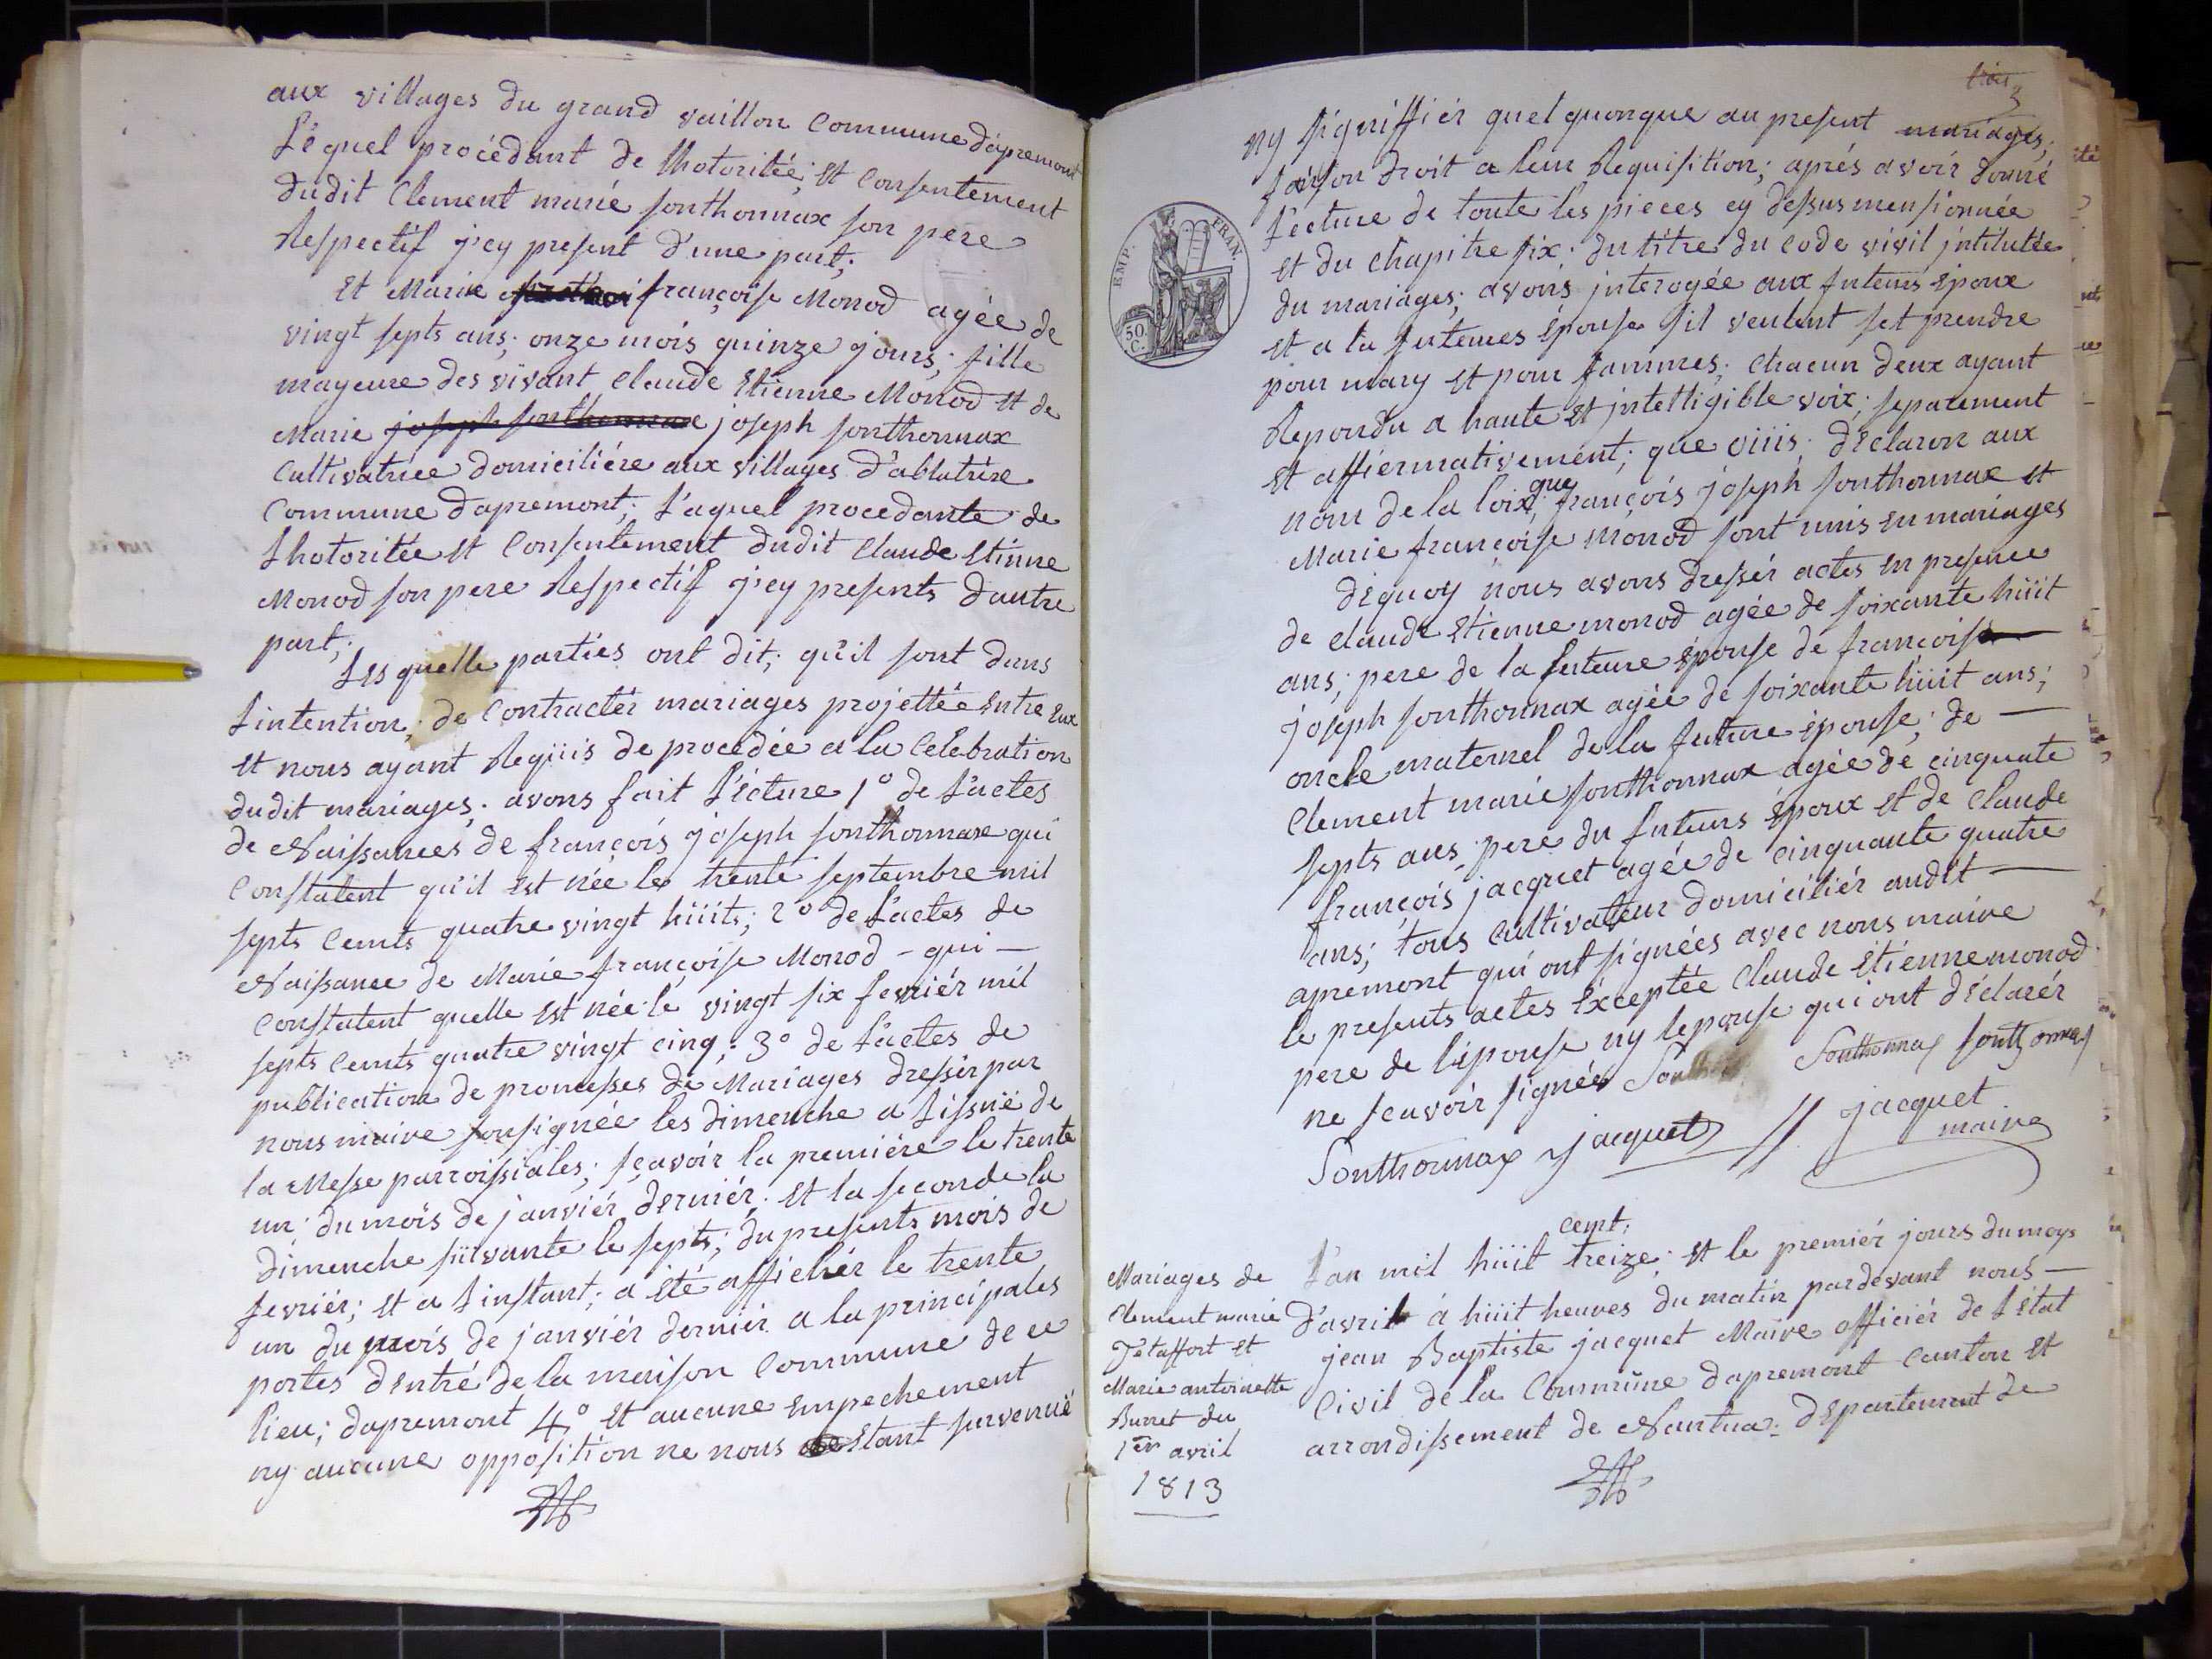 aux villages du grand vaillon Commune d'apremont
Léquel procédant de lhotoritée; et Consentement
dudit Clement marie sonthonnax son pere
Respectif j'cy present d'une part;
Et Marie françoise Monod agée de
vingt septs ans; onze mois quinze jours; fille
mayeure des vivant Claude Etienne Monod et de
Marie joseph sonthonnax joseph sonthonnax
Cultivatrice domiciliére aux villages d'ablatrixe
Commune dapremont; Laquel procedante de
Lhotoritée et Consentement dudit Claude Etinne
Monod son pere Respectif j'cy presents dautre
part;
Les quelle parties ont dit; qu'il sont dans
Lintention; de Contractér mariages projettée Entre Eux
et nous ayant Requis de procedée a la Celebration
dudit mariages; avons fait Lécture 1° de Lactes
de Naissances de françois joseph sonthonnax qui
Constatent qu'il est née les trente septembre mil
septs Cemts quatre vingt hüits; 2° de Lactes de
Naissance de Marie françoise Monod - qui -
Constatent quelle est née le vingt six fevriér mil
septs Cemts quatre vingt cinq; 3° de Lactes de
publication de promesses de Mariages dressér par
nous maire sousignée les dimenche a Lissuë de
la Messe parroissiales; sçavoir la premiére le trente
un; du mois de janviér derniér; et la seconde la
dimenche suivante le septs; du presents mois de
fevriér; et a Linstant; a été affichér le trente
un du mois de janviér dernier a la principales
portes dentré de la maison Commune de ce
lieu; dapremont 4° et aucune Empechement
ny aucune opposition ne nous Etant survenuë
ny signiffiér quelquonque au present mariages;
faison droit a leur Requisition; aprés avoir donné
Lecture de toute les pieces cy dessus mensionnée
et du chapitre six; du titre du Code civil jntitutée
du mariages; avons jnterogée aux futeurs époux
et a la futeures épouse sil veulent set prendre
pour mary et pour fammes; chacun deux ayant
Repondu a haute et jntelligible voix; separement
et affiermativement; que viiis; déclaron aux
nom de la loix; que françois joseph sonthonnax et
Marie françoise monod sont unis en mariages
déquoy nous avons dressér actes en presence
de Claude Etienne monod agée de soixante hüit
ans; pere de la futeure épouse de françois
joseph sonthonnax agée de soixante hüit ans;
oncle maternel de la future épouse; de —
Clement marie sonthonnax agée de cinquate
septs ans; pere du futeurs époux et de Claude
françois jacquet agée de cinquante quatre
ans; tous cultivateur domiciliér audit —
apremont qui ont signées avec nous maire
le presents actes Exceptée Claude étienne monod
pere de lépouse ny lepouse qui ont déclarér
ne scavoir signée Sonthonnax sonthonnax
Sonthonnax jacquet jacquet
maire
Mariages de
Clement marie
Tétaffort et
Marie antoinette
Burret du
1er avril
1813
Lan mil hüit cemt; treize; et le premiér jours du moys
D'avril á hüit heures du matin pardevant nous —
jean Baptiste jacquet Maire officiér de Létat
Civil de la Commune dapremont canton et
arrondissement de Nantua; département de
EMP. FRAN.
50.
C.